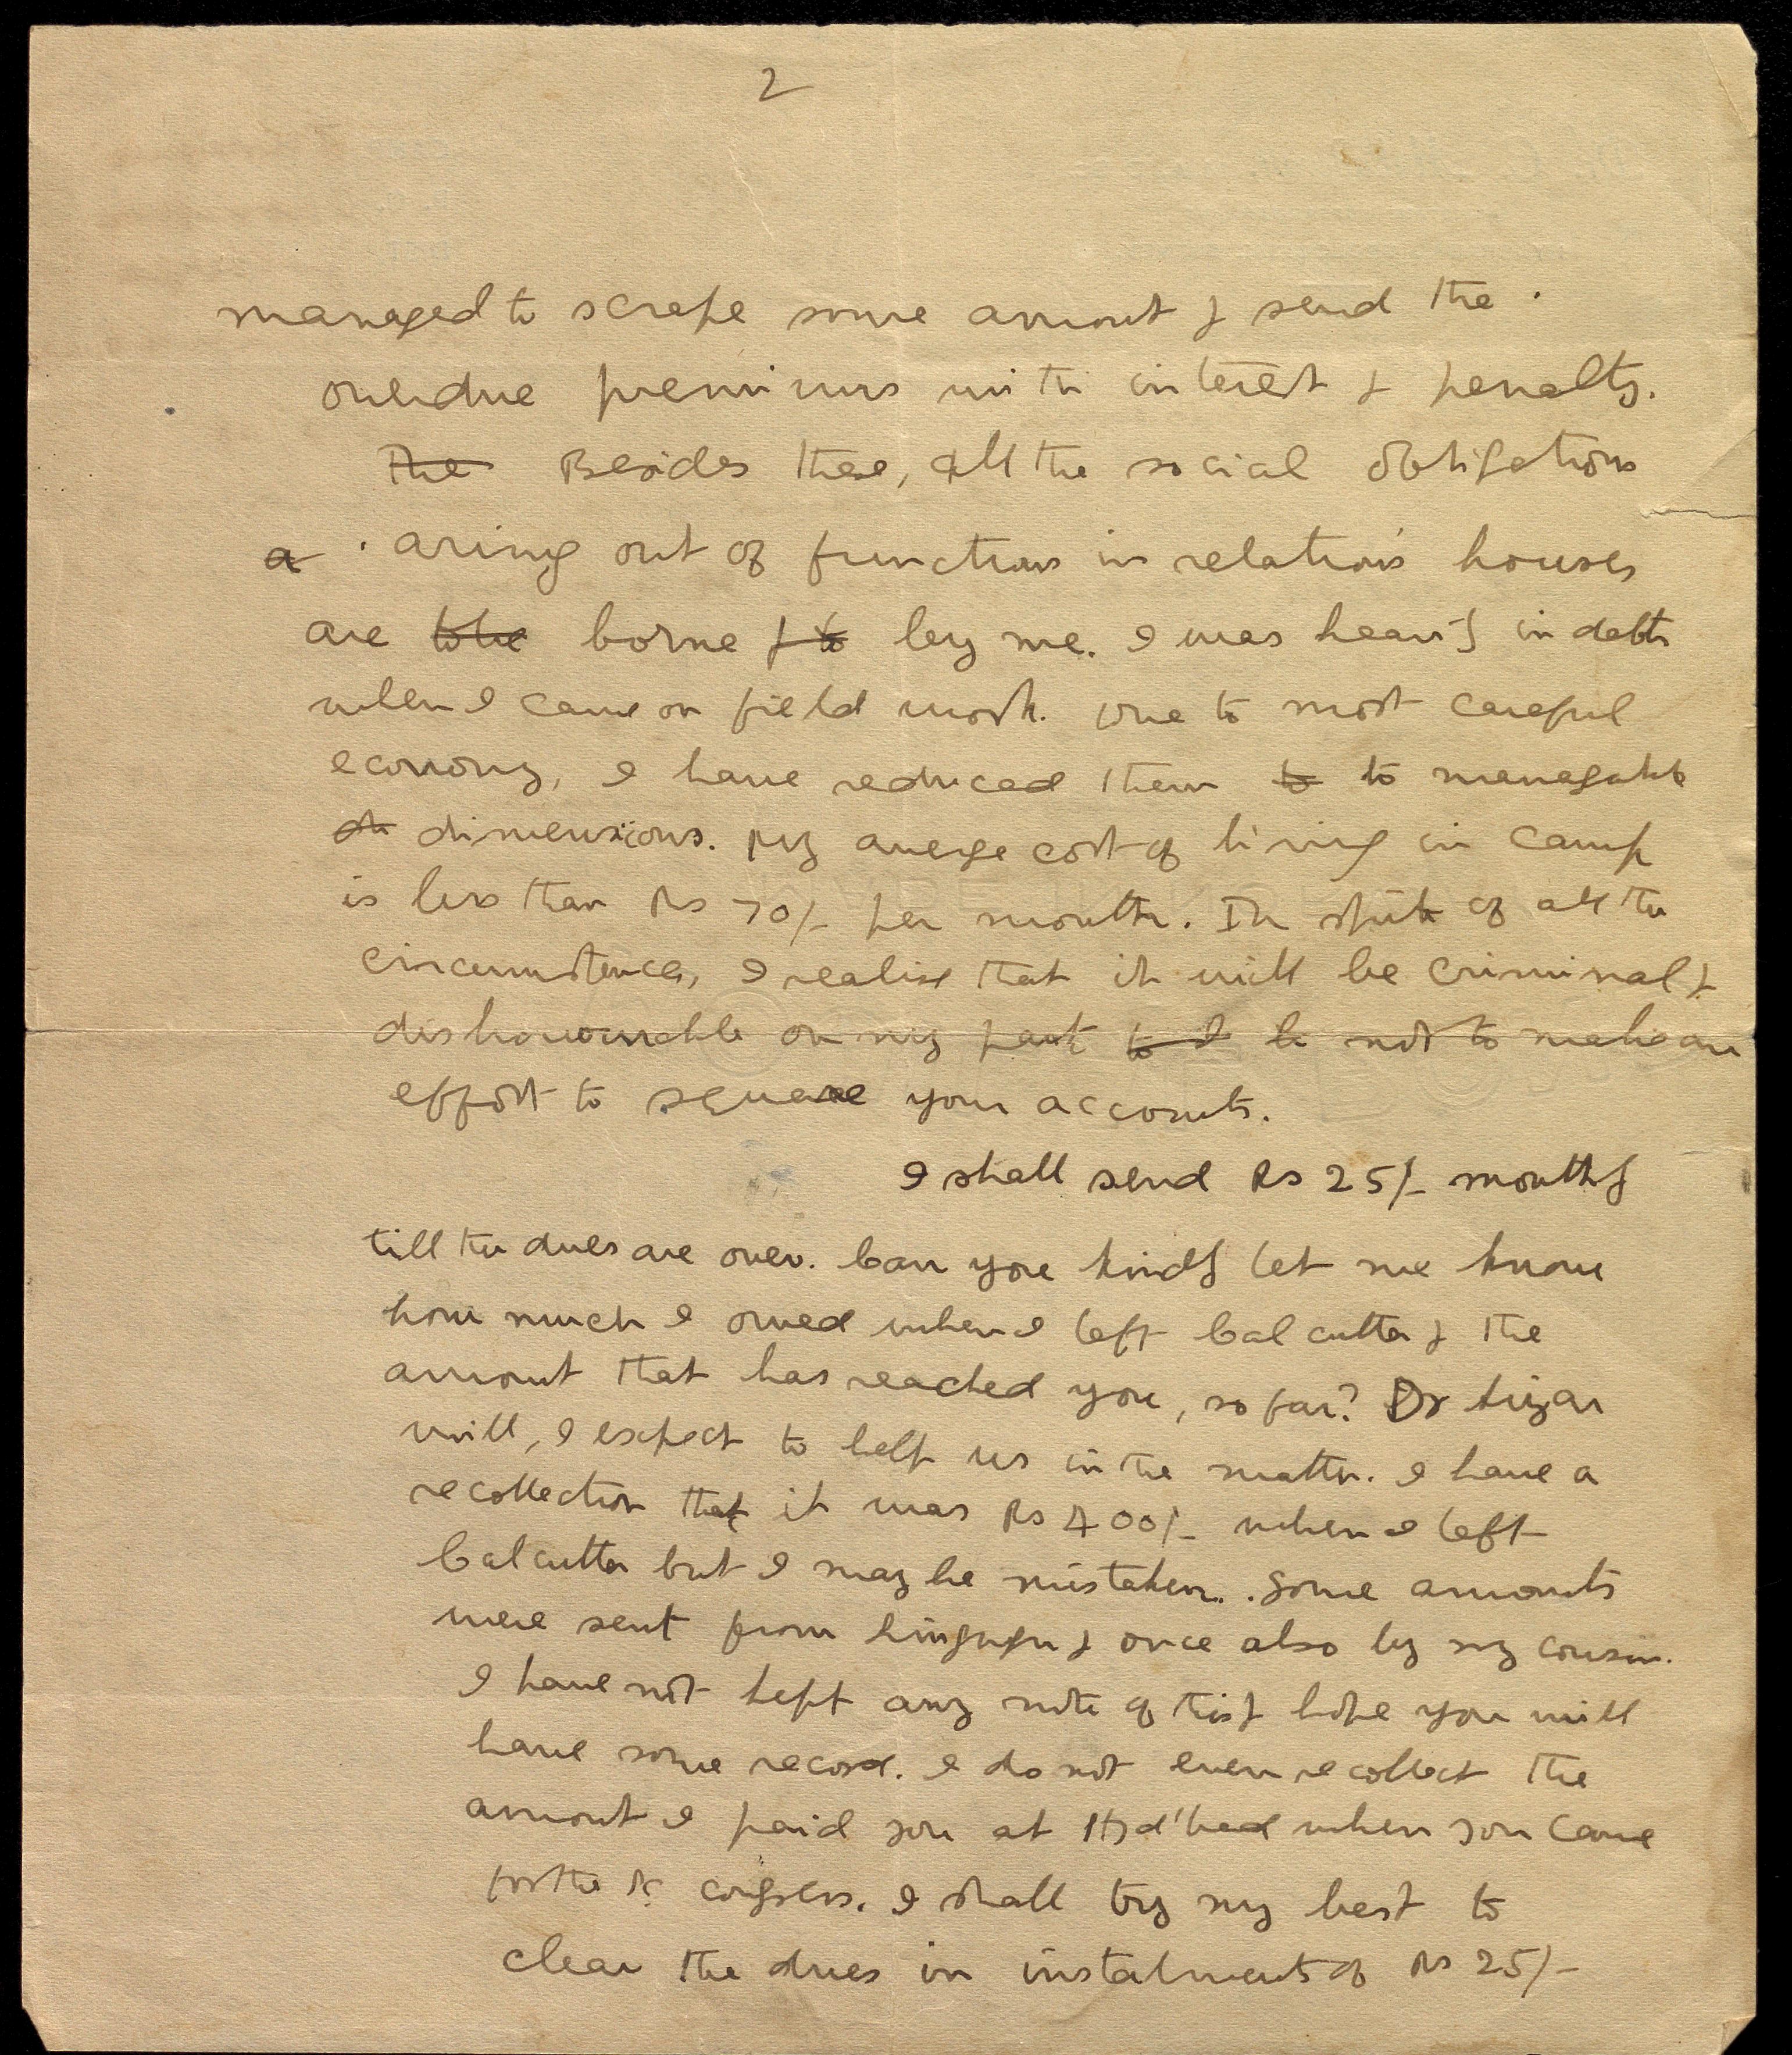 2
managed to scrape some amount & send the
overdue premiums with interest & penalty.
The Besides these, all the social obligations
a aring out of functions in relation's houses
are to be borne & to by me. I was heavily in debts
when I came on field work. Due to most careful
economy, I have reduced them to to managable
di dimensions. My averge cost of living in camp
is less than Rs 70/- per month. In spite of all the
circumstances, I realise that it will be criminal &
dishonourable on my part to I be not to make an
effort to square your accounts.
I shall send Rs 25/- monthly
till the dues are over. Can you kindly let me know
how much I owed when I left Calcutta & the
amount that has reached you, so far? Dr
will, I expect to help us in the matter. I have a
recollection that it was Rs 400/- when I left
Calcutta but I may be mistaken. Some amounts
were sent from & once also by my cousin.
I have not kept any note of this & hope you will
have some record. I do not even recollect the
amount I paid you at Hyd'bad when you came
for the Sc congress. I shall try my best to
clear the dues in instalments of Rs 25/-